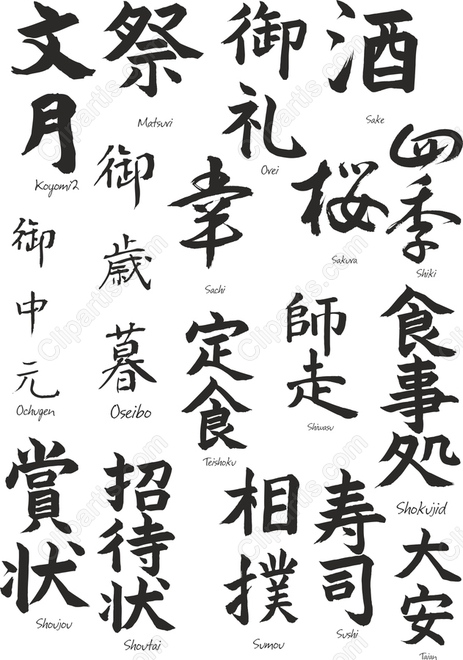 文月
Koyomi2
祭
Matsuri
御礼
Orei
酒
Sake
御歳暮
Oseibo
幸
Sachi
桜
Sakura
四季
Shiki
御中元
Ochugen
定食
Teishoku
師走
Shiwasu
食事処
Shokujid
賞状
Shoujou
招待状
Shoutai
相撲
Sumou
寿司
Sushi
大安
Taian
Clipartis.com